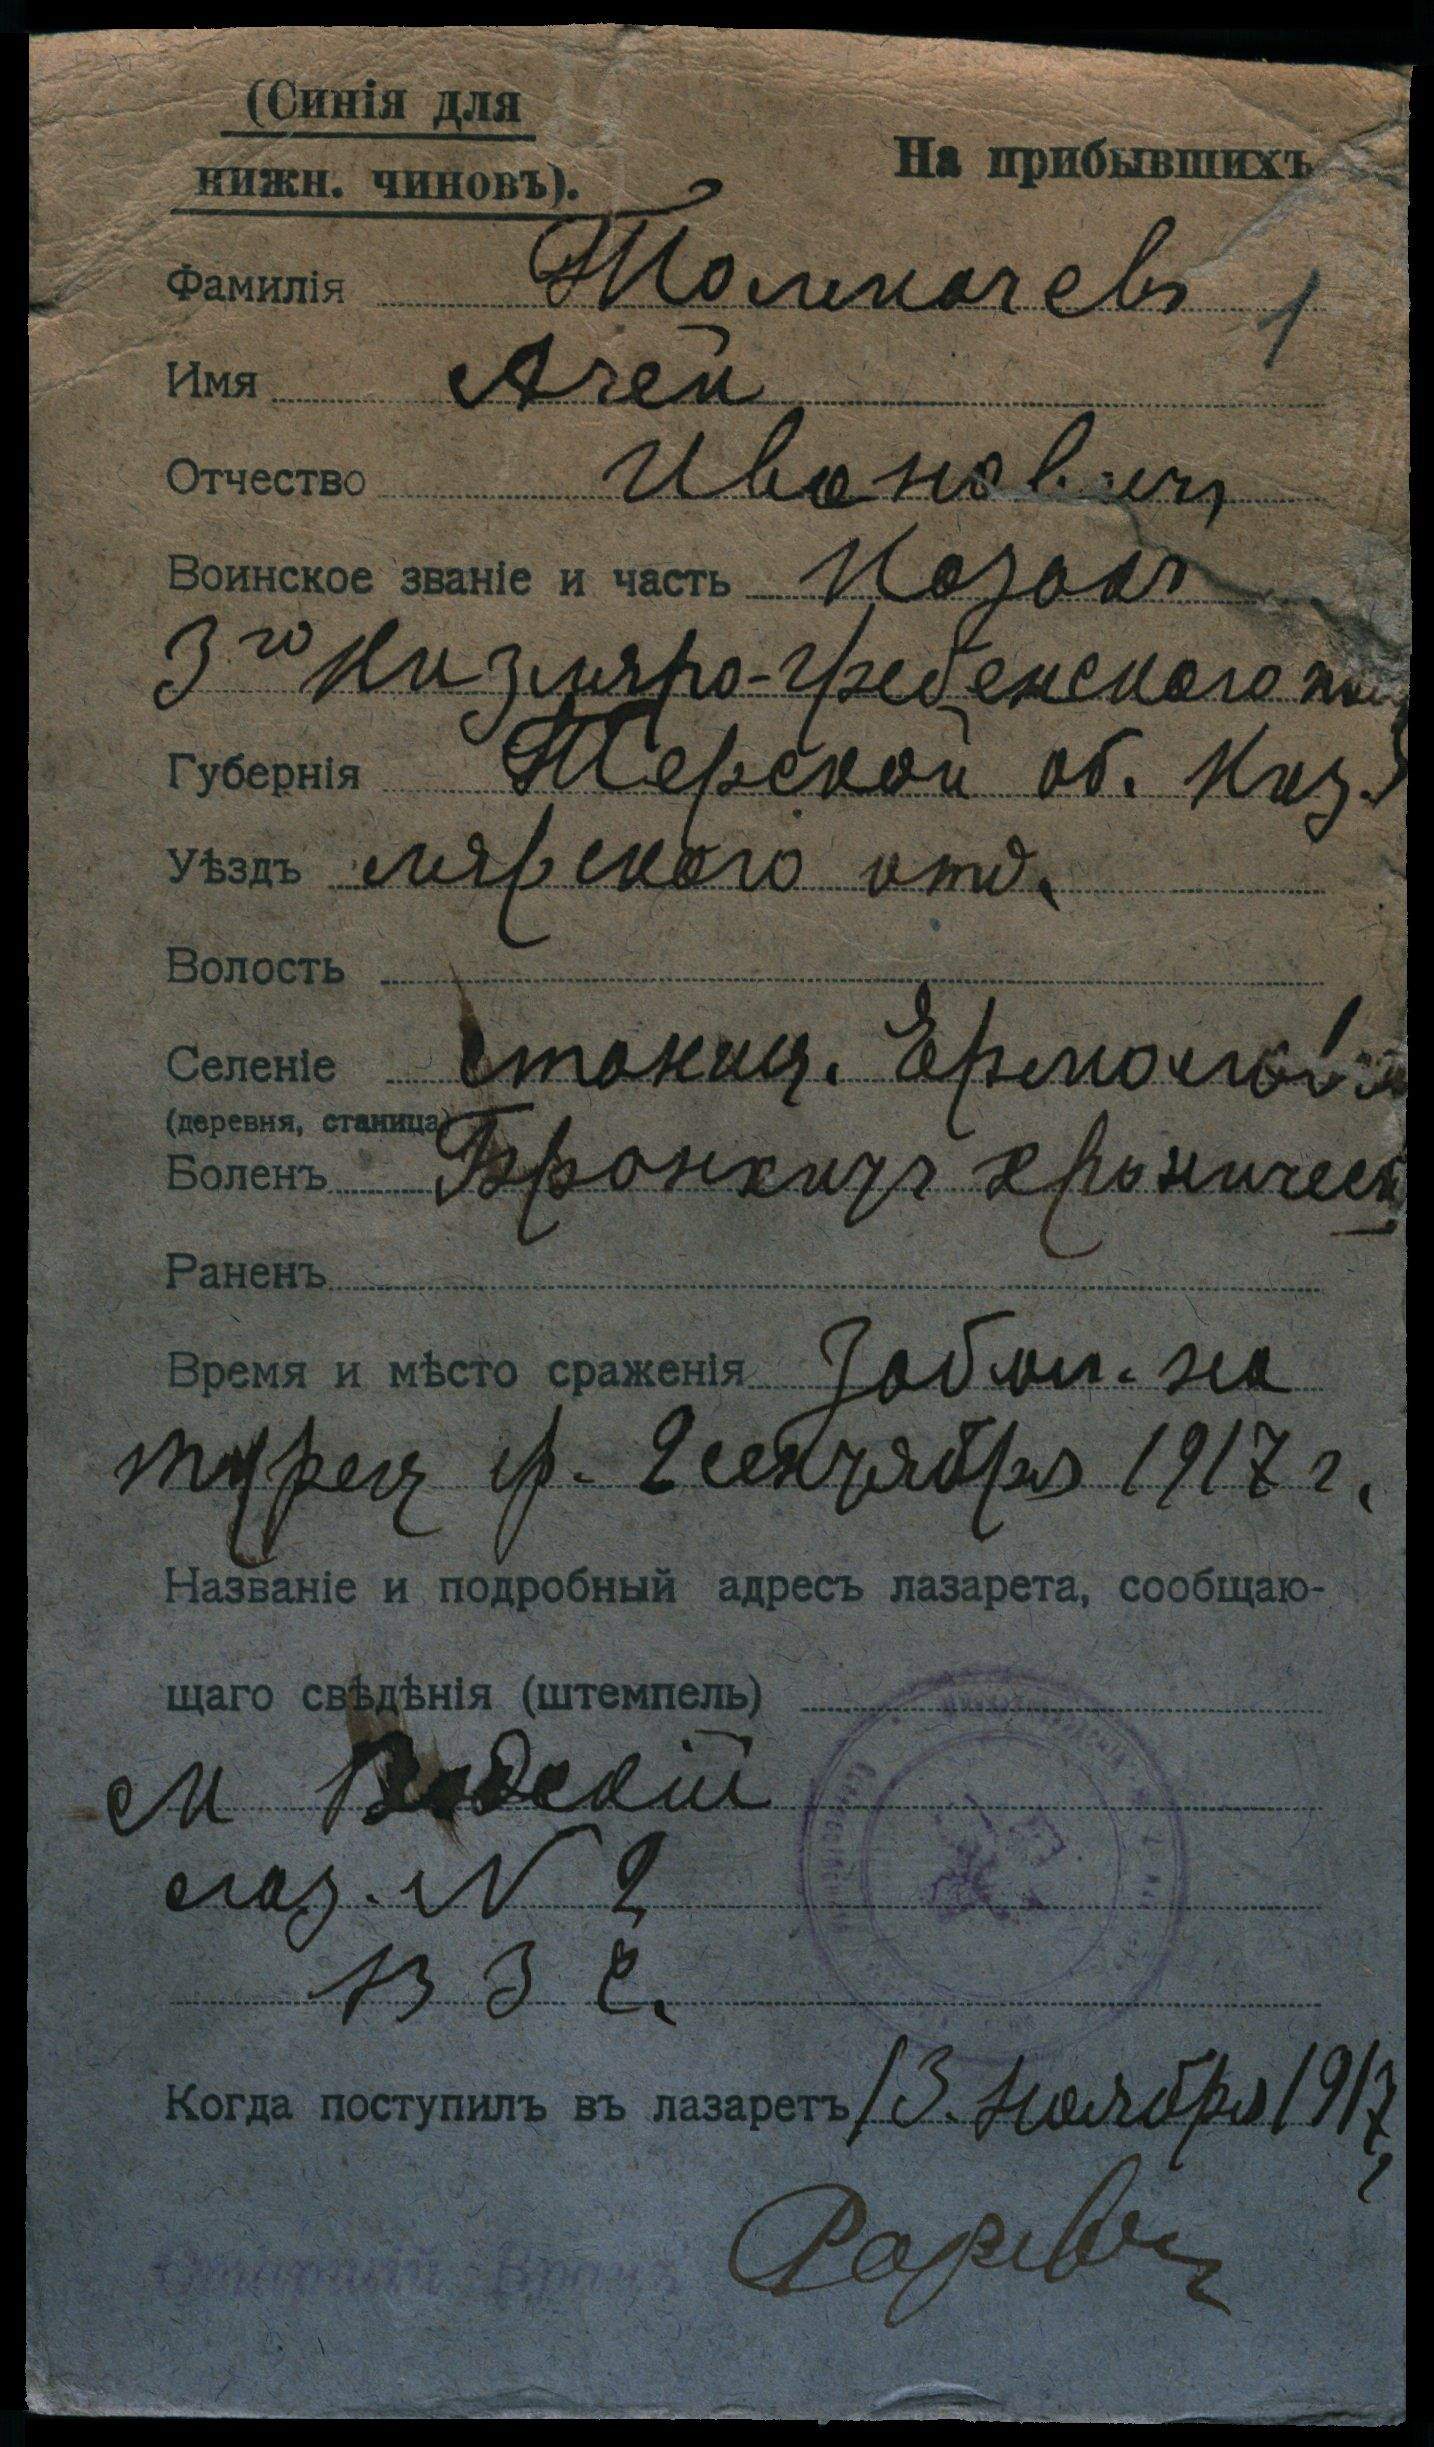 (Синія для
нижн. чиновъ).
На прибывшихъ
Фамилія Толмачевъ 1
Имя Агей
Отчество Ивановичъ
Воинское званіе и часть Козакъ
3го Кизляро-Гребенского
Губернія Терской об. Киз-
Уѣздъ лярского отд.
Волость
Селеніе станиц.
(деревня, станица)
Боленъ Бронхитъ хроническ
Раненъ
Время и мѣсто сраженія Забол. на
турец фр. 2 сентября 1917 г.
Названіе и подробный адресъ лазарета, сообщаю-
щаго свѣдѣнія (штемпель)
лаз. N 2
В З С.
Когда поступилъ въ лазаретъ 13 ноября 1917
Старшій Врачъ